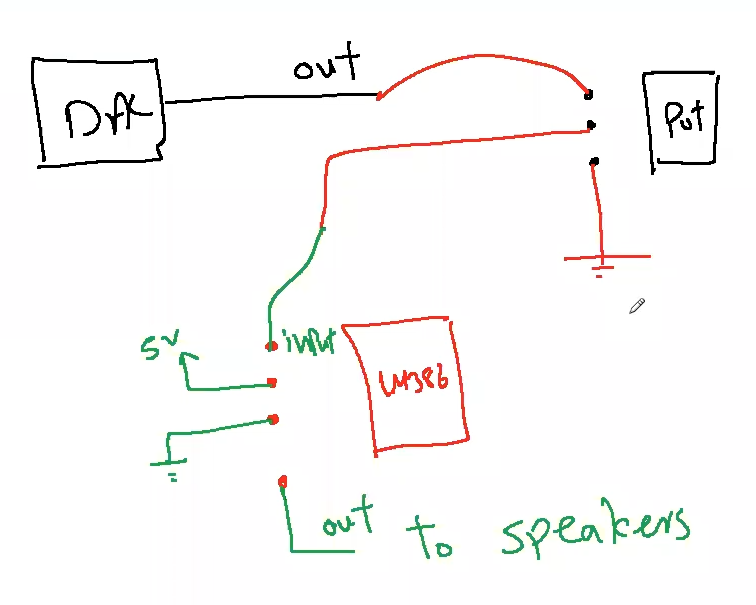 out
DAC
Pot
5V
input
LM386
out to speakers